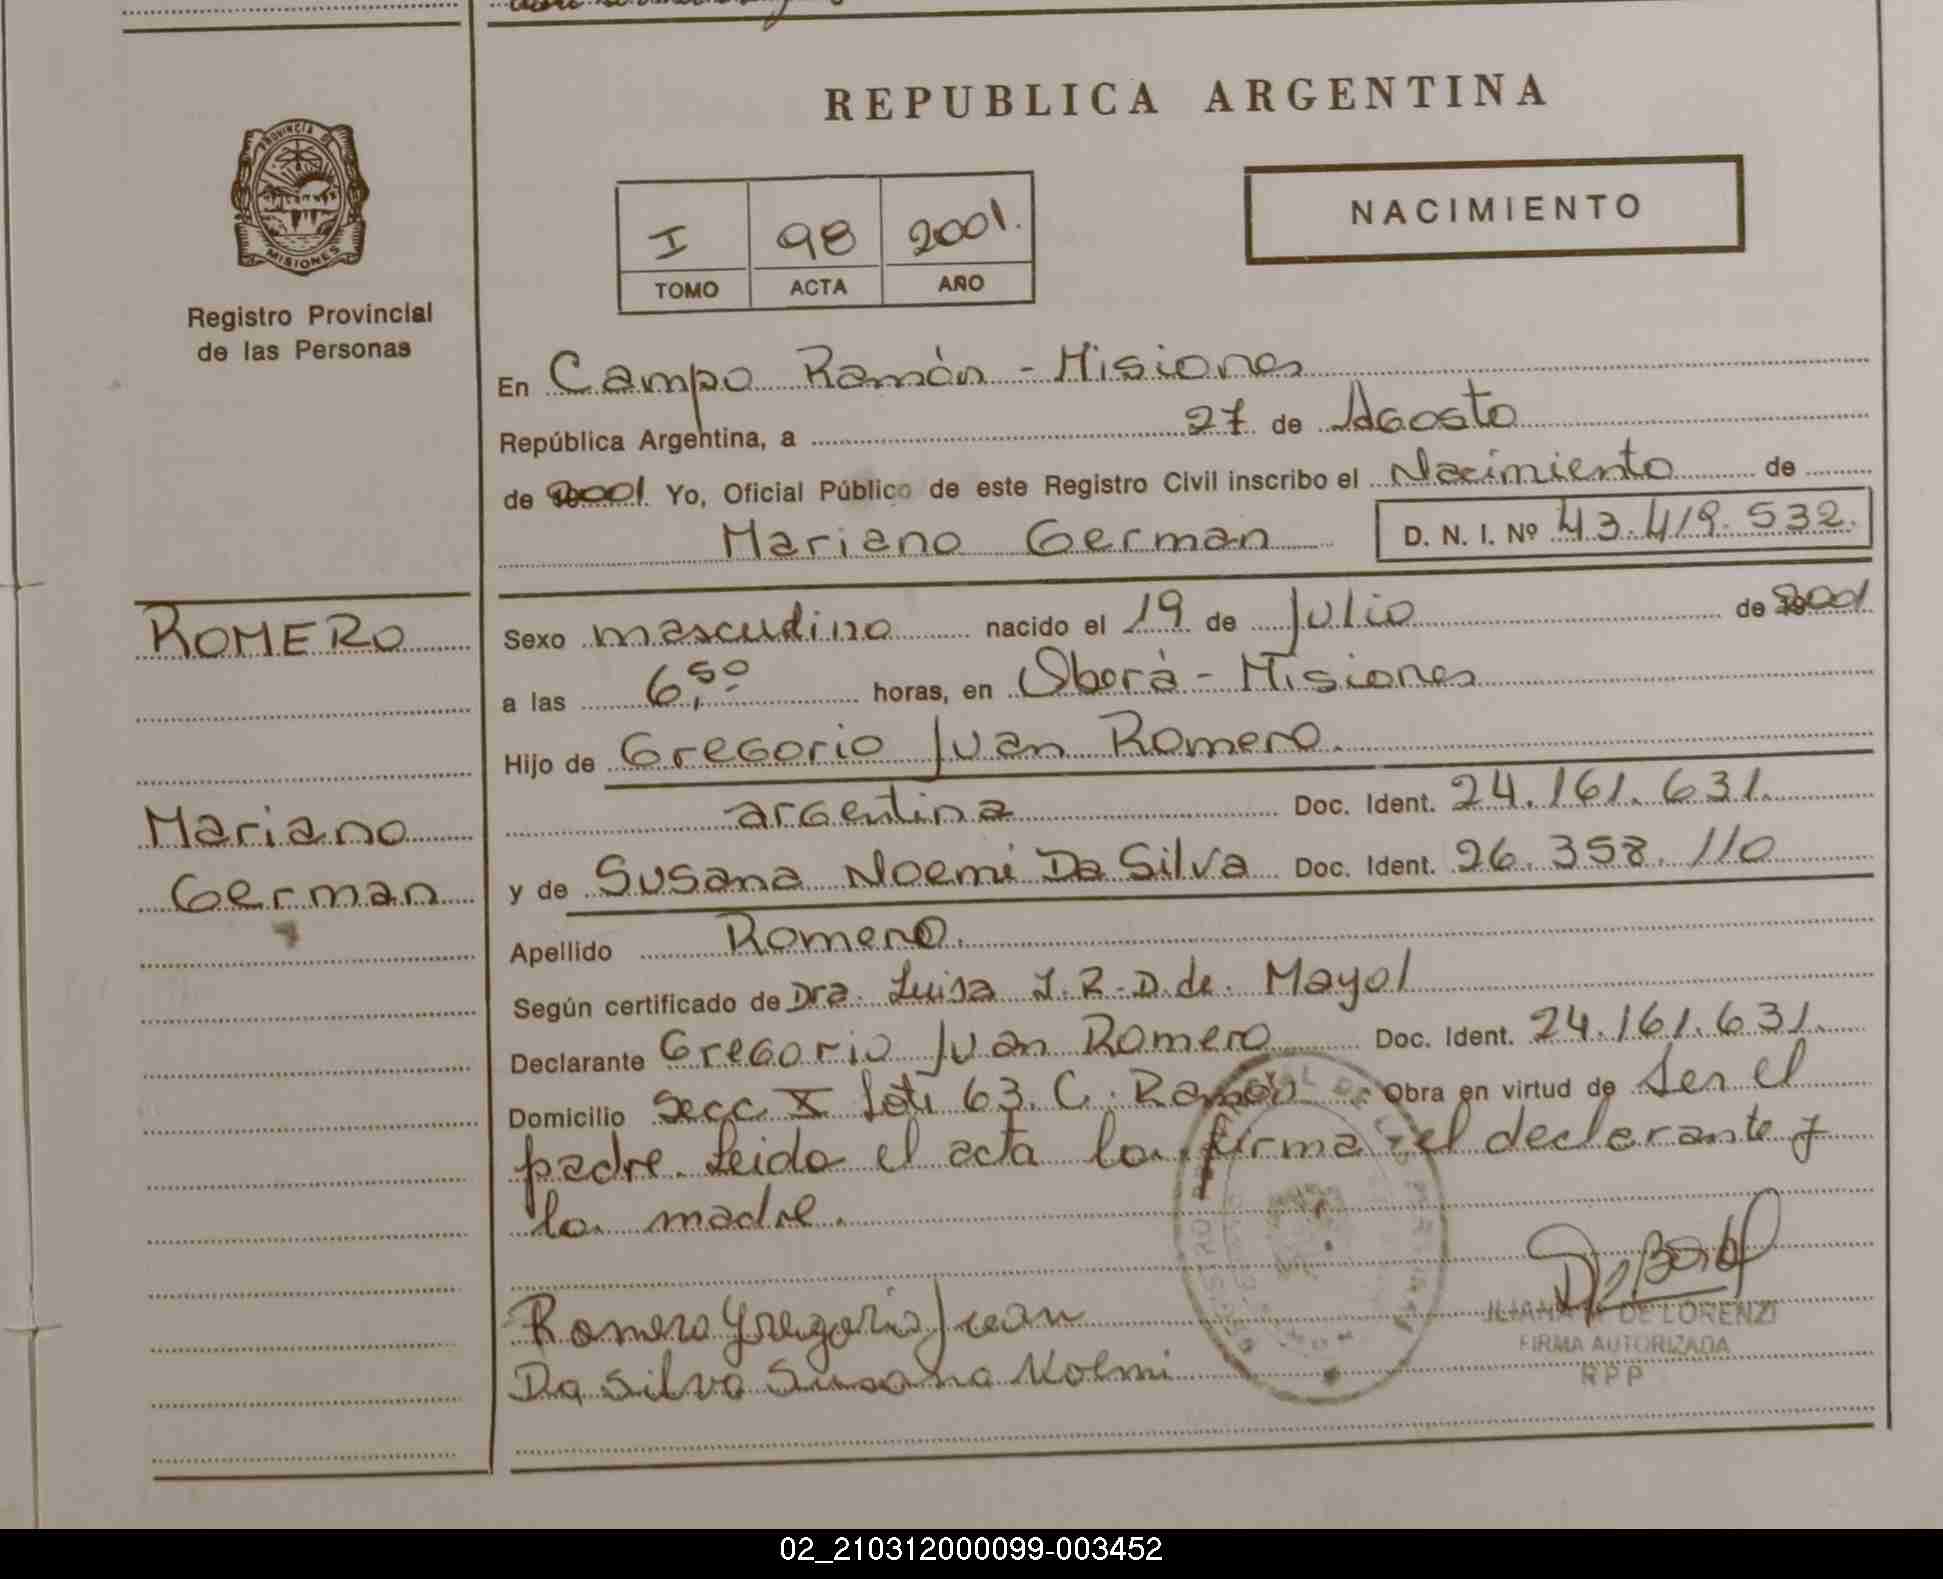 REPUBLICA ARGENTINA
PROVINCIA DE
MISIONES
Registro Provincial
de las Personas
I 98 2001.
TOMO ACTA AÑO
NACIMIENTO
En Campo Ramón - Misiones
República Argentina, a 27 de Agosto
de 2001 Yo, Oficial Público de este Registro Civil inscribo el Nacimiento de
Mariano German D. N. I. Nº 43.419.532.
ROMERO
Mariano
German
Sexo masculino nacido el 19 de Julio de 2001
a las 6,50 horas, en Oberá - Misiones
Hijo de Gregorio Juan Romero.
argentina Doc. Ident. 24.161.631.
y de Susana Noemi Da Silva Doc. Ident. 26.358.110
Apellido Romero.
Según certificado de Dra. Luisa J.R.D. de. Mayol
Declarante Gregorio Juan Romero Doc. Ident. 24.161.631.
Domicilio Secc X Lote 63. C. Ramón Obra en virtud de Ser el
padre. Leida el acta la firma el declarante y
la madre.
Romero Gregorio Juan
Da Silva Susana Noemi
DE LORENZI
FIRMA AUTORIZADA
RPP
02_210312000099-003452